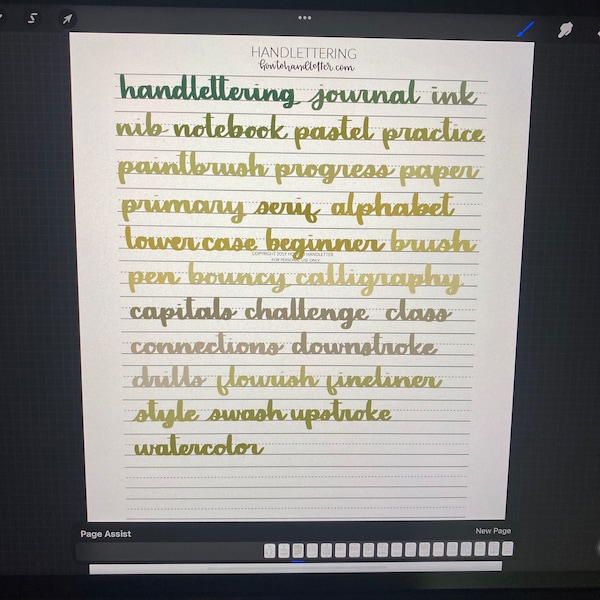 HANDLETTERING
howtohandletter.com
handlettering journal ink
nib notebook pastel practice
paintbrush progress paper
primary serif alphabet
lowercase beginner brush
COPYRIGHT 2019 HOW TO HANDLETTER
FOR PERSONAL USE ONLY
pen bouncy calligraphy
capitals challenge class
connections downstroke
drills flourish fineliner
style swash upstroke
watercolor
Page Assist
New Page